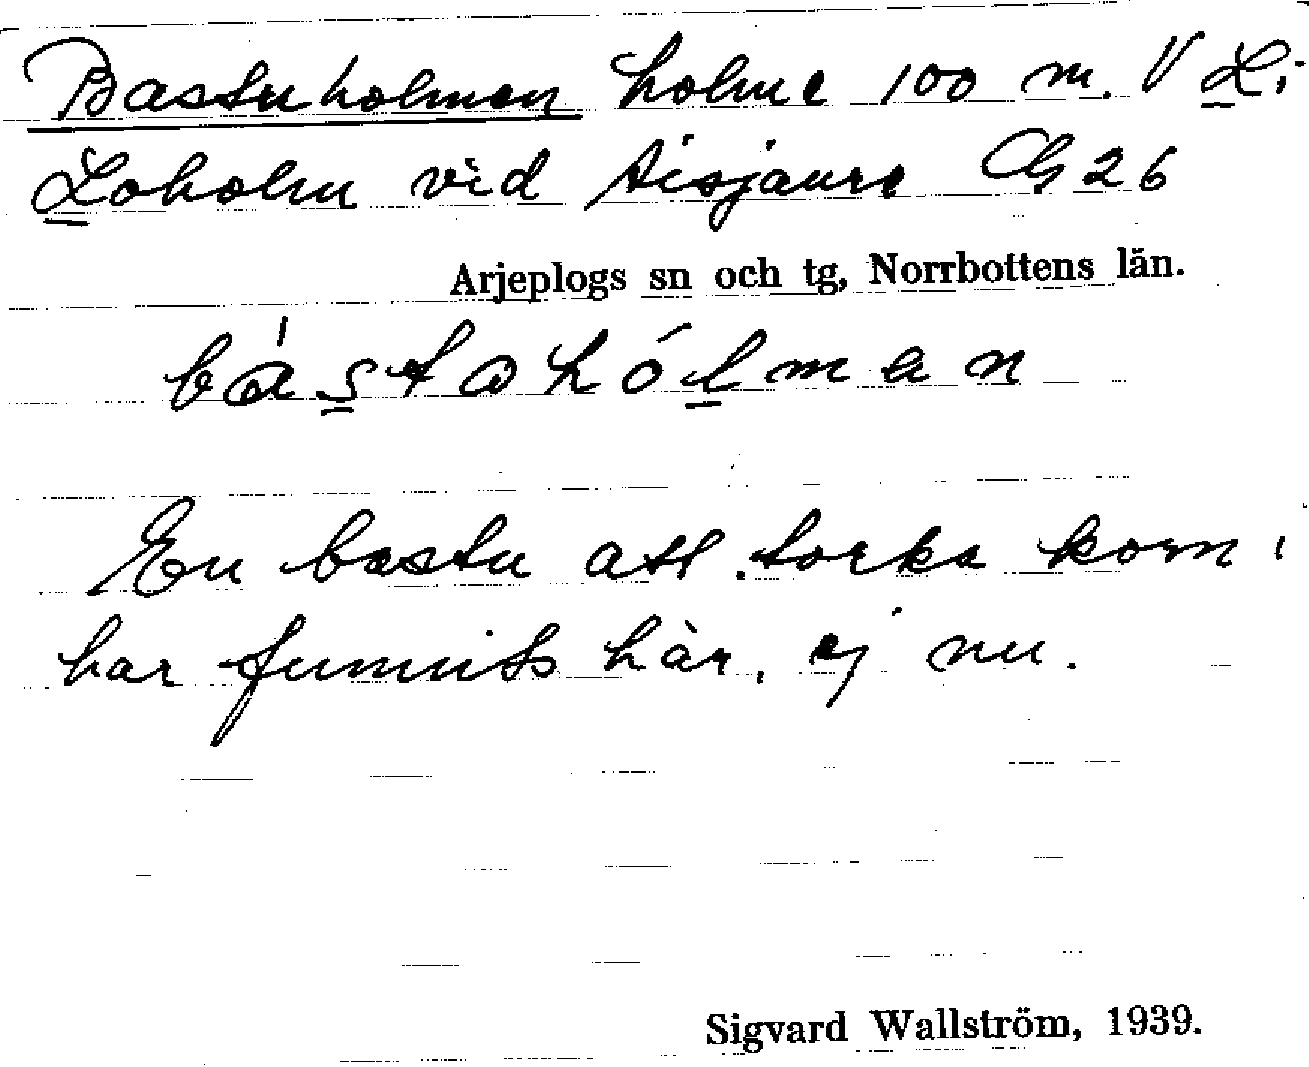 Bastuholmen holme 100 m. V Li
Loholm vid Aisjaure Ch 26
Arjeplogs sn och tg, Norrbottens län.
bástahólman
En bastu att torka korn i
har funnits här, ej nu.
Sigvard Wallström, 1939.